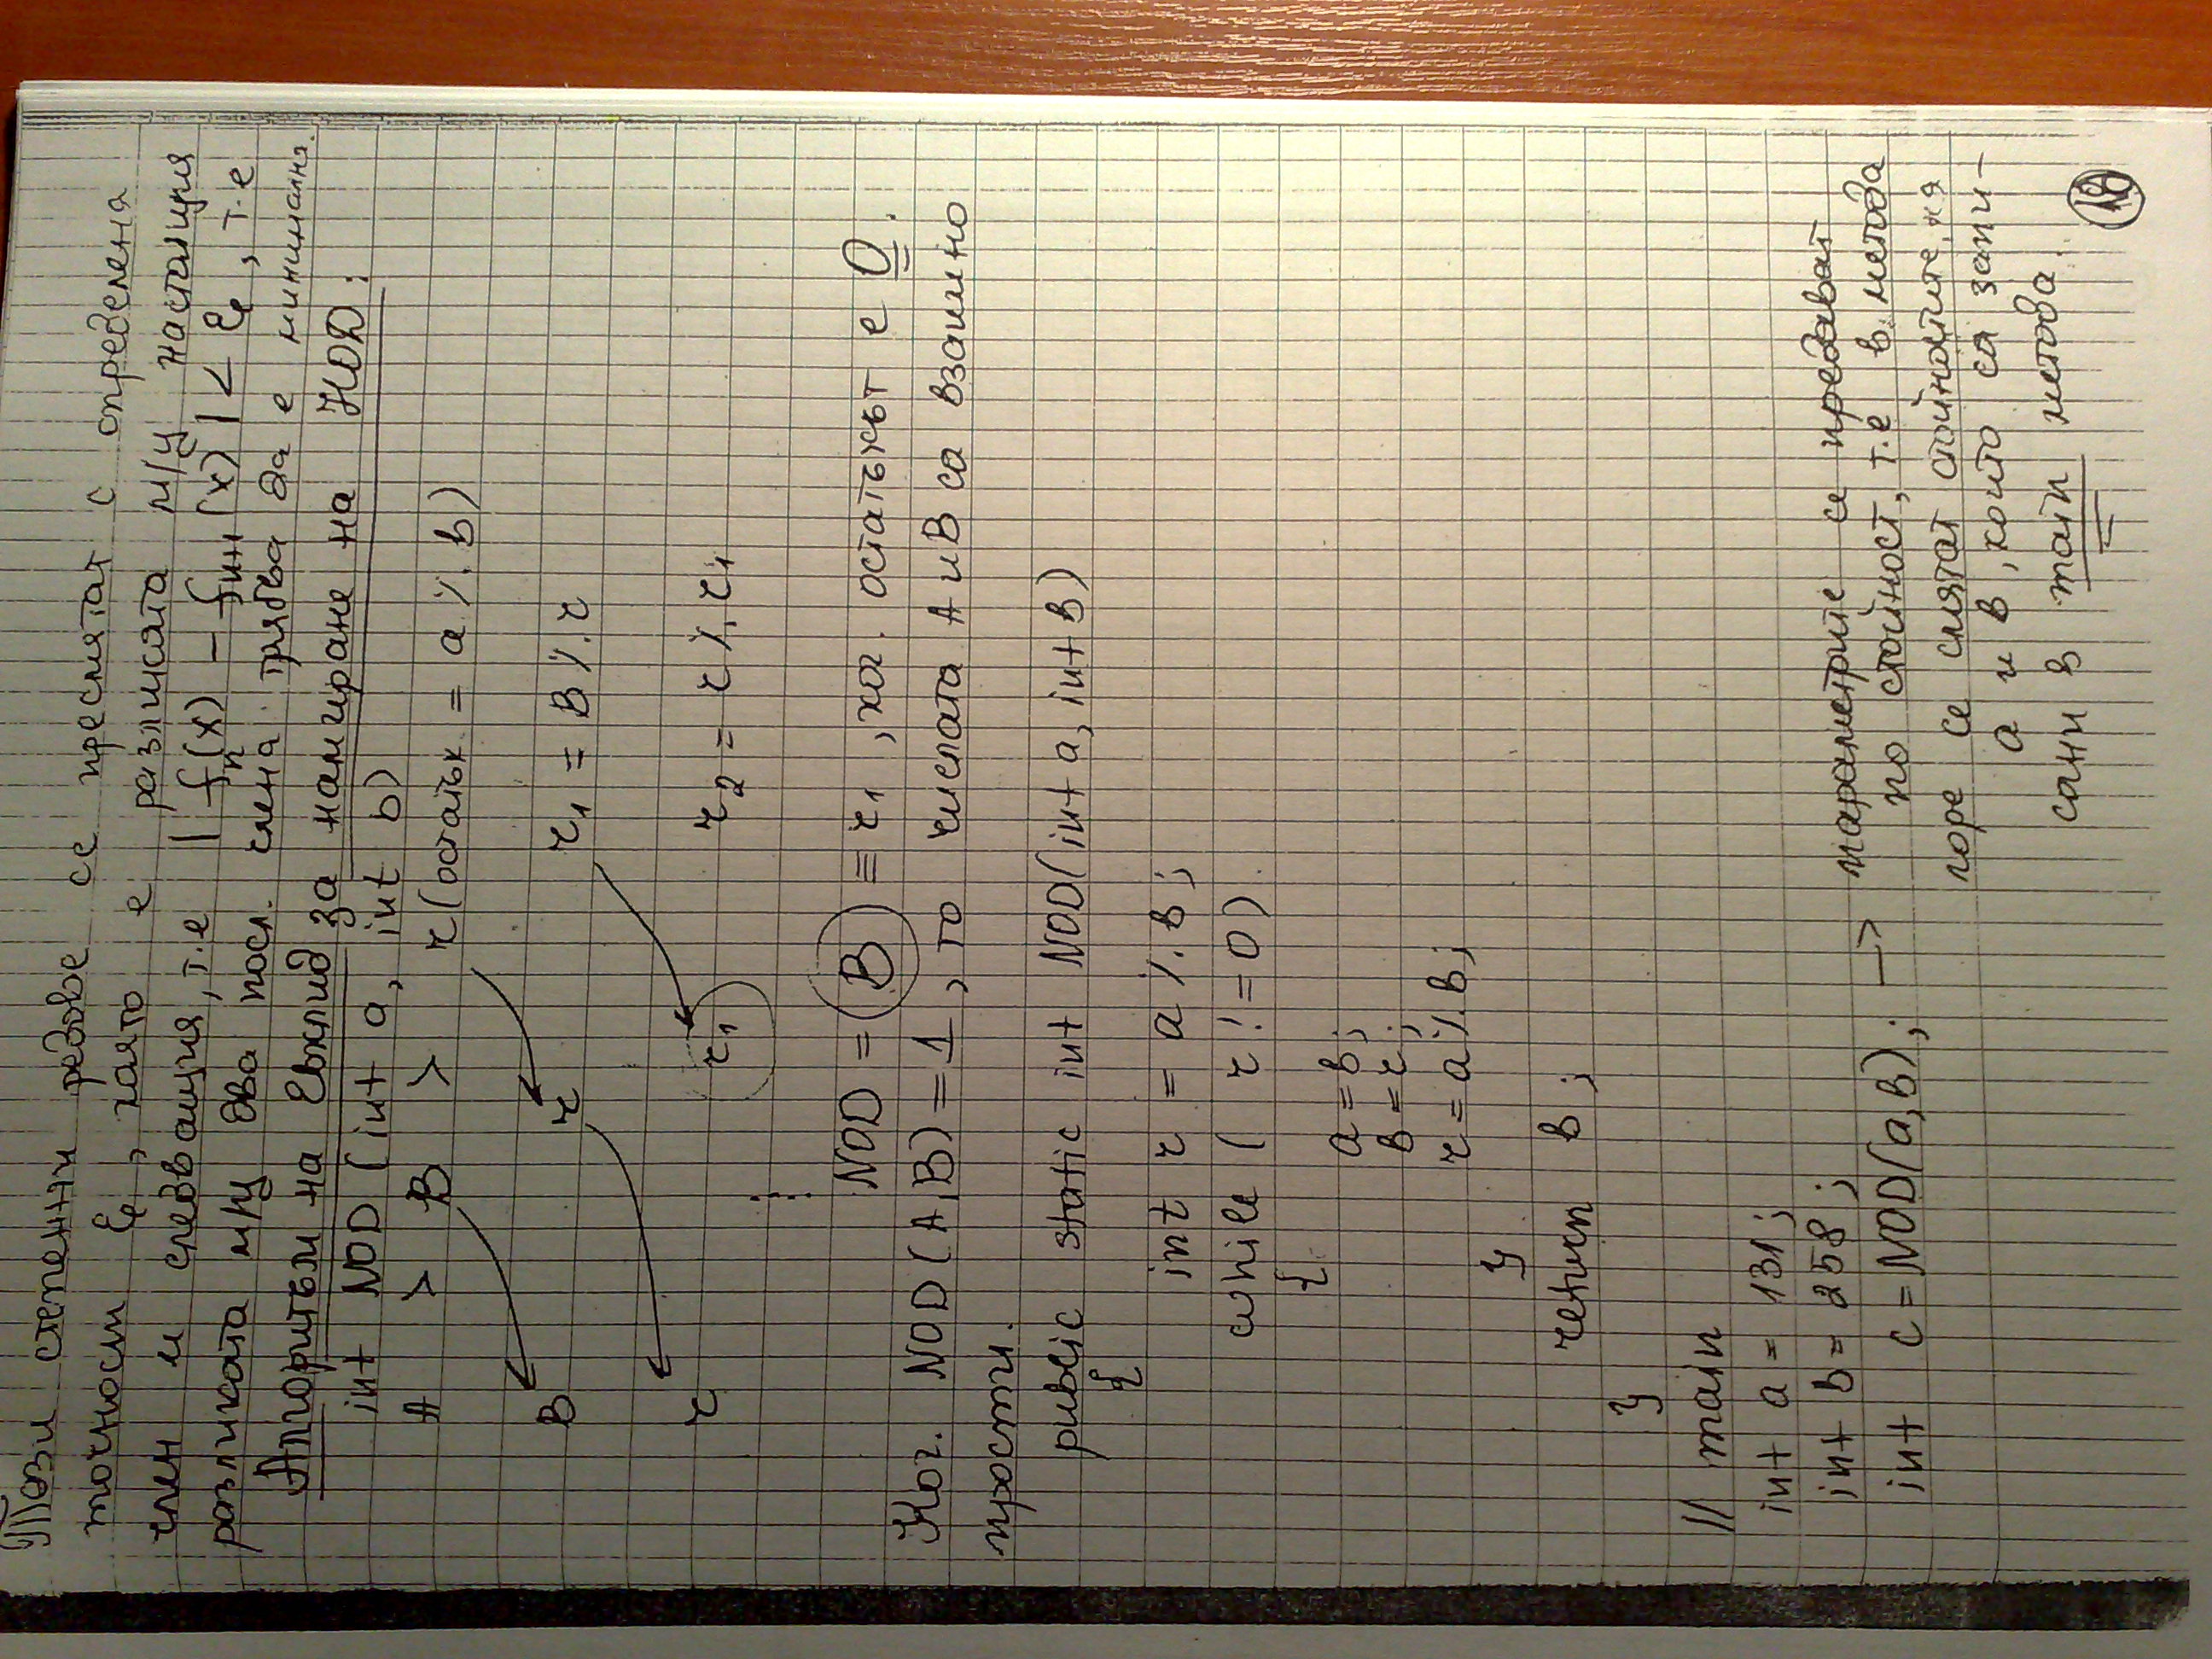 Тези степенни редове се пресмятат с определена
точност ξ, която е разликата м/у настоящия
член и следващия, т.е | fn(x) - fин(x) | < ξ, т.е
разликата м/у два посл. члена трябва да е минимална.
Алгоритъм на Евклид за намиране на НОД:
int NOD (int a, int b)
A > B > r (остатък = a % b)
B r r1 = B % r
r r1 r2 = r % r1
⋮
NOD = B ≡ r1, ког. остатъкът е 0.
Ког. NOD (A,B) = 1, то числата A и B са взаимно
прости.
public static int NOD(int a, int B)
{
int r = a % B;
while ( r != 0)
{
a = b;
B = r;
r = a % B;
}
return B;
}
// main
int a = 131;
int B = 258;
int c = NOD(a,B); → параметрите се предават
по стойност, т.е в метода
горе се смятат стойностите на
a и B, които са запи-
сани в main метода.
18